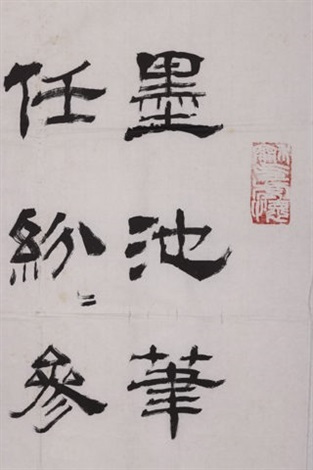 墨池筆
任紛〻參